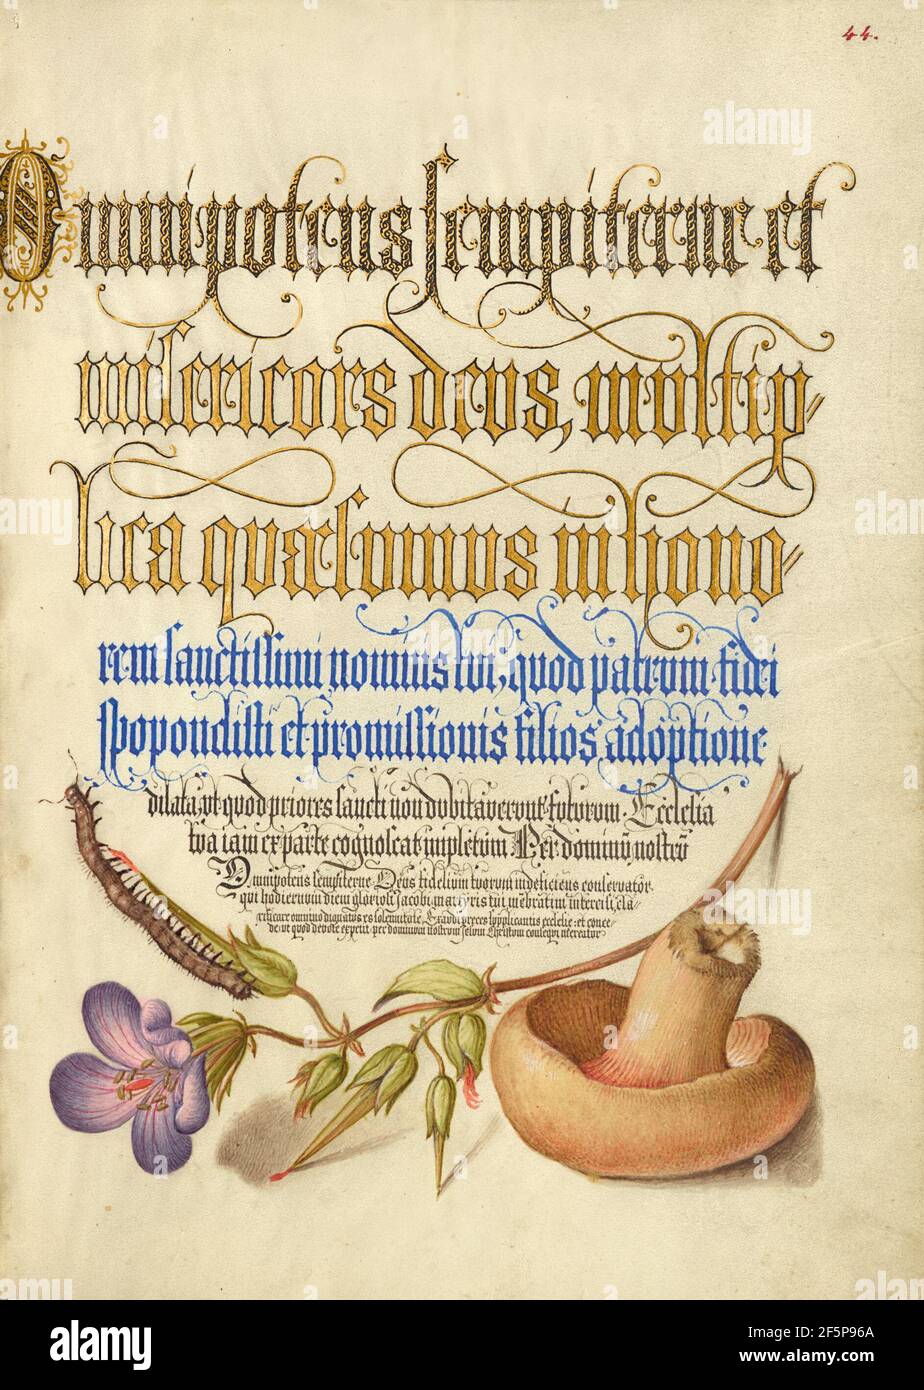 44.
Omnipotens sempiterne et
misericors deus, multip⸗
lica quæsumus in hono⸗
rem sanctissimi nominis tui, quod patrum fidei
spopondisti et promissionis filios adoptione
dilata, ut quod priores sancti non dubitaverunt futurum. Ecclesia
tua iam ex parte cognoscat impletum Per dominū nostrū
Omnipotens sempiterne Deus fidelium tuorum indeficiens conservator,
qui hodiernum diem gloriosi Jacobi martyris tui membratim intercisi, cla⸗
rificare omnimo dignatus es solemnitate, Exaudi preces supplicantis ecclesie: et conce⸗
de: ut quod devote expetit, per dominum nostrum Jesum Christum consequi mereatur
alamy
Image ID: 2F5P96A
www.alamy.com